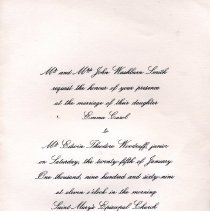 Mr. and Mrs. John Washburn Smith
request the honour of your presence
at the marriage of their daughter
Emma Carol
to
Mr. Edwin Theodore Woodruff, junior
on Saturday, the twenty-fifth of January
One thousand, nine hundred and sixty-nine
at eleven o'clock in the morning
Saint Mary's Episcopal Church